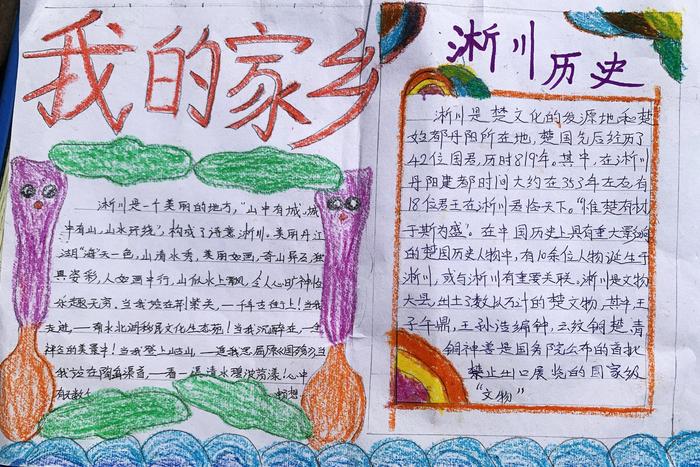 我的家乡
淅川是一个美丽的地方，“山中有城，城
中有山，山水环绕”，构成了诗意淅川。美丽丹江
湖“海天一色，山清水秀，美丽如画，奇山异石，独
具姿彩，人如画中行，山似水上飘，令人心旷神怡
乐趣无穷，当我站在荆紫关，一千古在
走进，一南水北调移民文化生态苑！当我沉醉在，一
神奇的美景中！当我登上岵山，一追我思屈原《国殇》
我站在陶岔渠首，一看一渠清水碧波荡漾！心中
淅川历史
淅川是楚文化的发源地和楚
始都丹阳所在地，楚国先后经历了
42位国君，历时819年。其中，在淅川
丹阳建都时间大约在353年左右，有
18位君王在淅川君临天下。“惟楚有材，
于斯为盛”。在中国历史上具有重大影响
的楚国历史人物中，有10余位人物诞生于
淅川，或与淅川有重要关联。淅川是文物
大县，出土了数以万计的楚文物，其中，王
子午鼎，王孙浩编钟，云纹铜楚，青
铜神兽是国务院公布的首批
禁止出口展览的国家级
“文物”